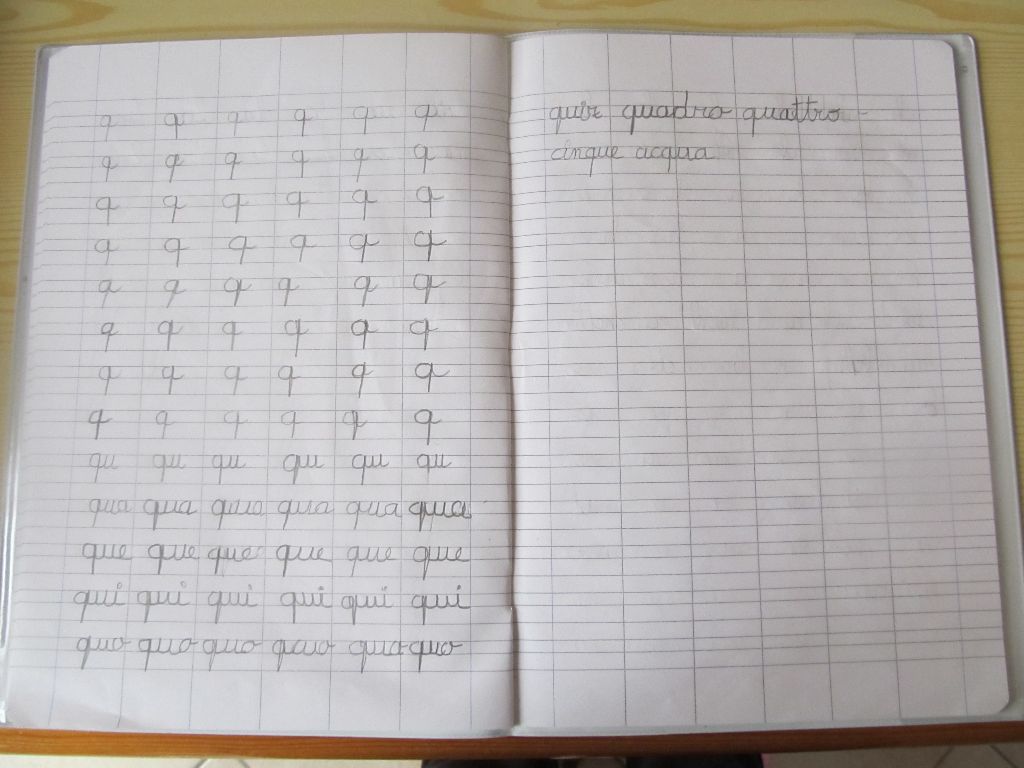 q q q q q q
q q q q q q
q q q q q q
q q q q q q
q q q q q q
q q q q q q
q q q q q q
q q q q q q
qu qu qu qu qu qu
qua qua qua qua qua qua
que que que que que que
qui qui qui qui qui qui
quo quo quo quo quo quo
quiz quadro quattro
cinque acqua